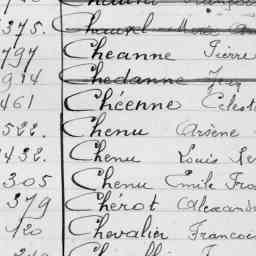 375. Chauvel
797 Cheanne Pierre
914 Chedanne
461 Chéenne Celest
522. Chenu Arsène
1432. Chenu Louis Re
305 Chenu Emile Fra
379 Chérot Alexandr
120 Chevalier Francoi